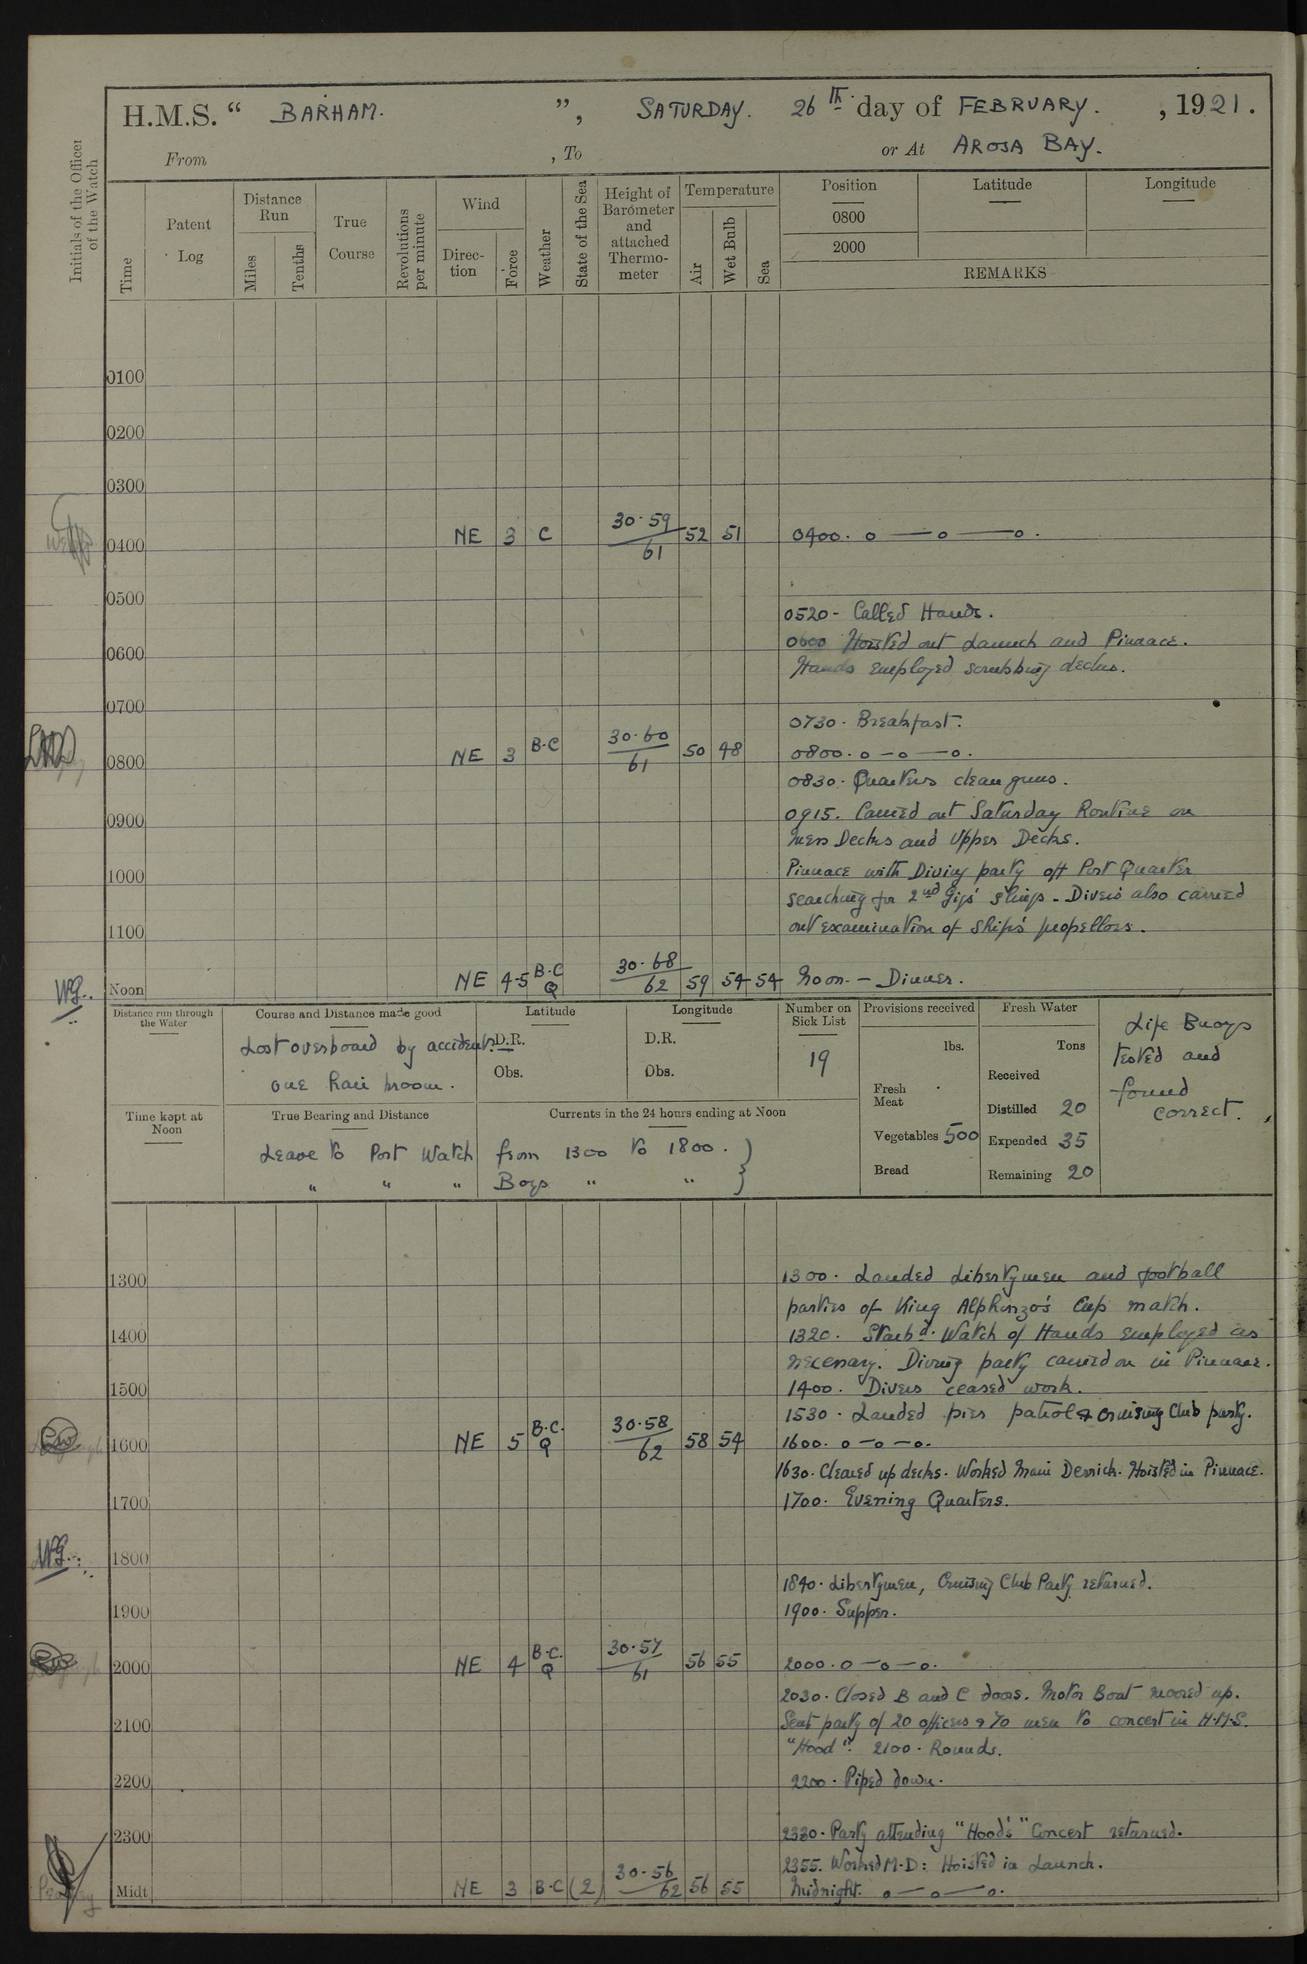 H.M.S. “ BARHAM. ”, SATURDAY. 26TH. day of FEBRUARY. , 1921.
From , To or At AROSA BAY.
Initials of the Officer of the Watch
Time
Patent Log
Distance Run
Miles
Tenths
True Course
Revolutions per minute
Wind
Direction
Force
Weather
State of the Sea
Height of Barometer and attached Thermometer
Temperature
Air
Wet Bulb
Sea
Position
Latitude
Longitude
0800
2000
REMARKS
0100
0200
0300
0400 NE 3 C 30·59/61 52 51 0400. o — o — o.
0500
0520 - Called Hands.
0600 Hoisted out Launch and Pinnace.
0600
Hands employed scrubbing decks.
0700
0730. Breakfast.
0800 NE 3 B·C 30·60/61 50 48 0800. o — o — o.
0830. Quarters clean guns.
0900
0915. Carried out Saturday Routine on
Mess Decks and Upper Decks.
1000
Pinnace with Diving party off Port Quarter
searching for 2nd Gigs' slings - Divers also carried
1100
out examination of Ships' propellors.
W.G. Noon NE 4-5 B·C Q 30·68/62 59 54 54 Noon. — Dinner.
Distance run through the Water
Course and Distance made good
Latitude
Longitude
Number on Sick List
Provisions received
Fresh Water
Lost overboard by accident:-
one hair broom.
D.R.
Obs.
D.R.
Obs.
19
lbs.
Fresh Meat
Vegetables 500
Bread
Tons
Received
Distilled 20
Expended 35
Remaining 20
Life Buoys
tested and
found
correct.
Time kept at Noon
True Bearing and Distance
Currents in the 24 hours ending at Noon
Leave to Port Watch from 1300 to 1800. }
" " " Boys " " }
1300
1300. Landed Libertymen and football
parties of King Alphonzo's Cup match.
1400
1320. Starbd. Watch of Hands employed as
necessary. Diving party carried on in Pinnace.
1500
1400. Divers ceased work.
1530. Landed pier patrol & Cruising Club party.
1600 NE 5 B·C. Q 30·58/62 58 54 1600. o — o — o.
1630. Cleared up decks. Worked Main Derrick. Hoisted in Pinnace.
1700
1700. Evening Quarters.
W.G. 1800
1840. Libertymen, Cruising Club Party returned.
1900
1900. Supper.
2000 NE 4 B·C. Q 30·57/61 56 55 2000. o — o — o.
2030. Closed B and C doors. Motor Boat moored up.
2100
Sent party of 20 officers & 70 men to concert in H.M.S.
"Hood". 2100. Rounds.
2200
2200. Piped down.
2300
2330. Party attending "Hood's" Concert returned.
2355. Worked M.D: Hoisted in Launch.
Midt NE 3 B·C (2) 30·56/62 56 55 Midnight. o — o — o.